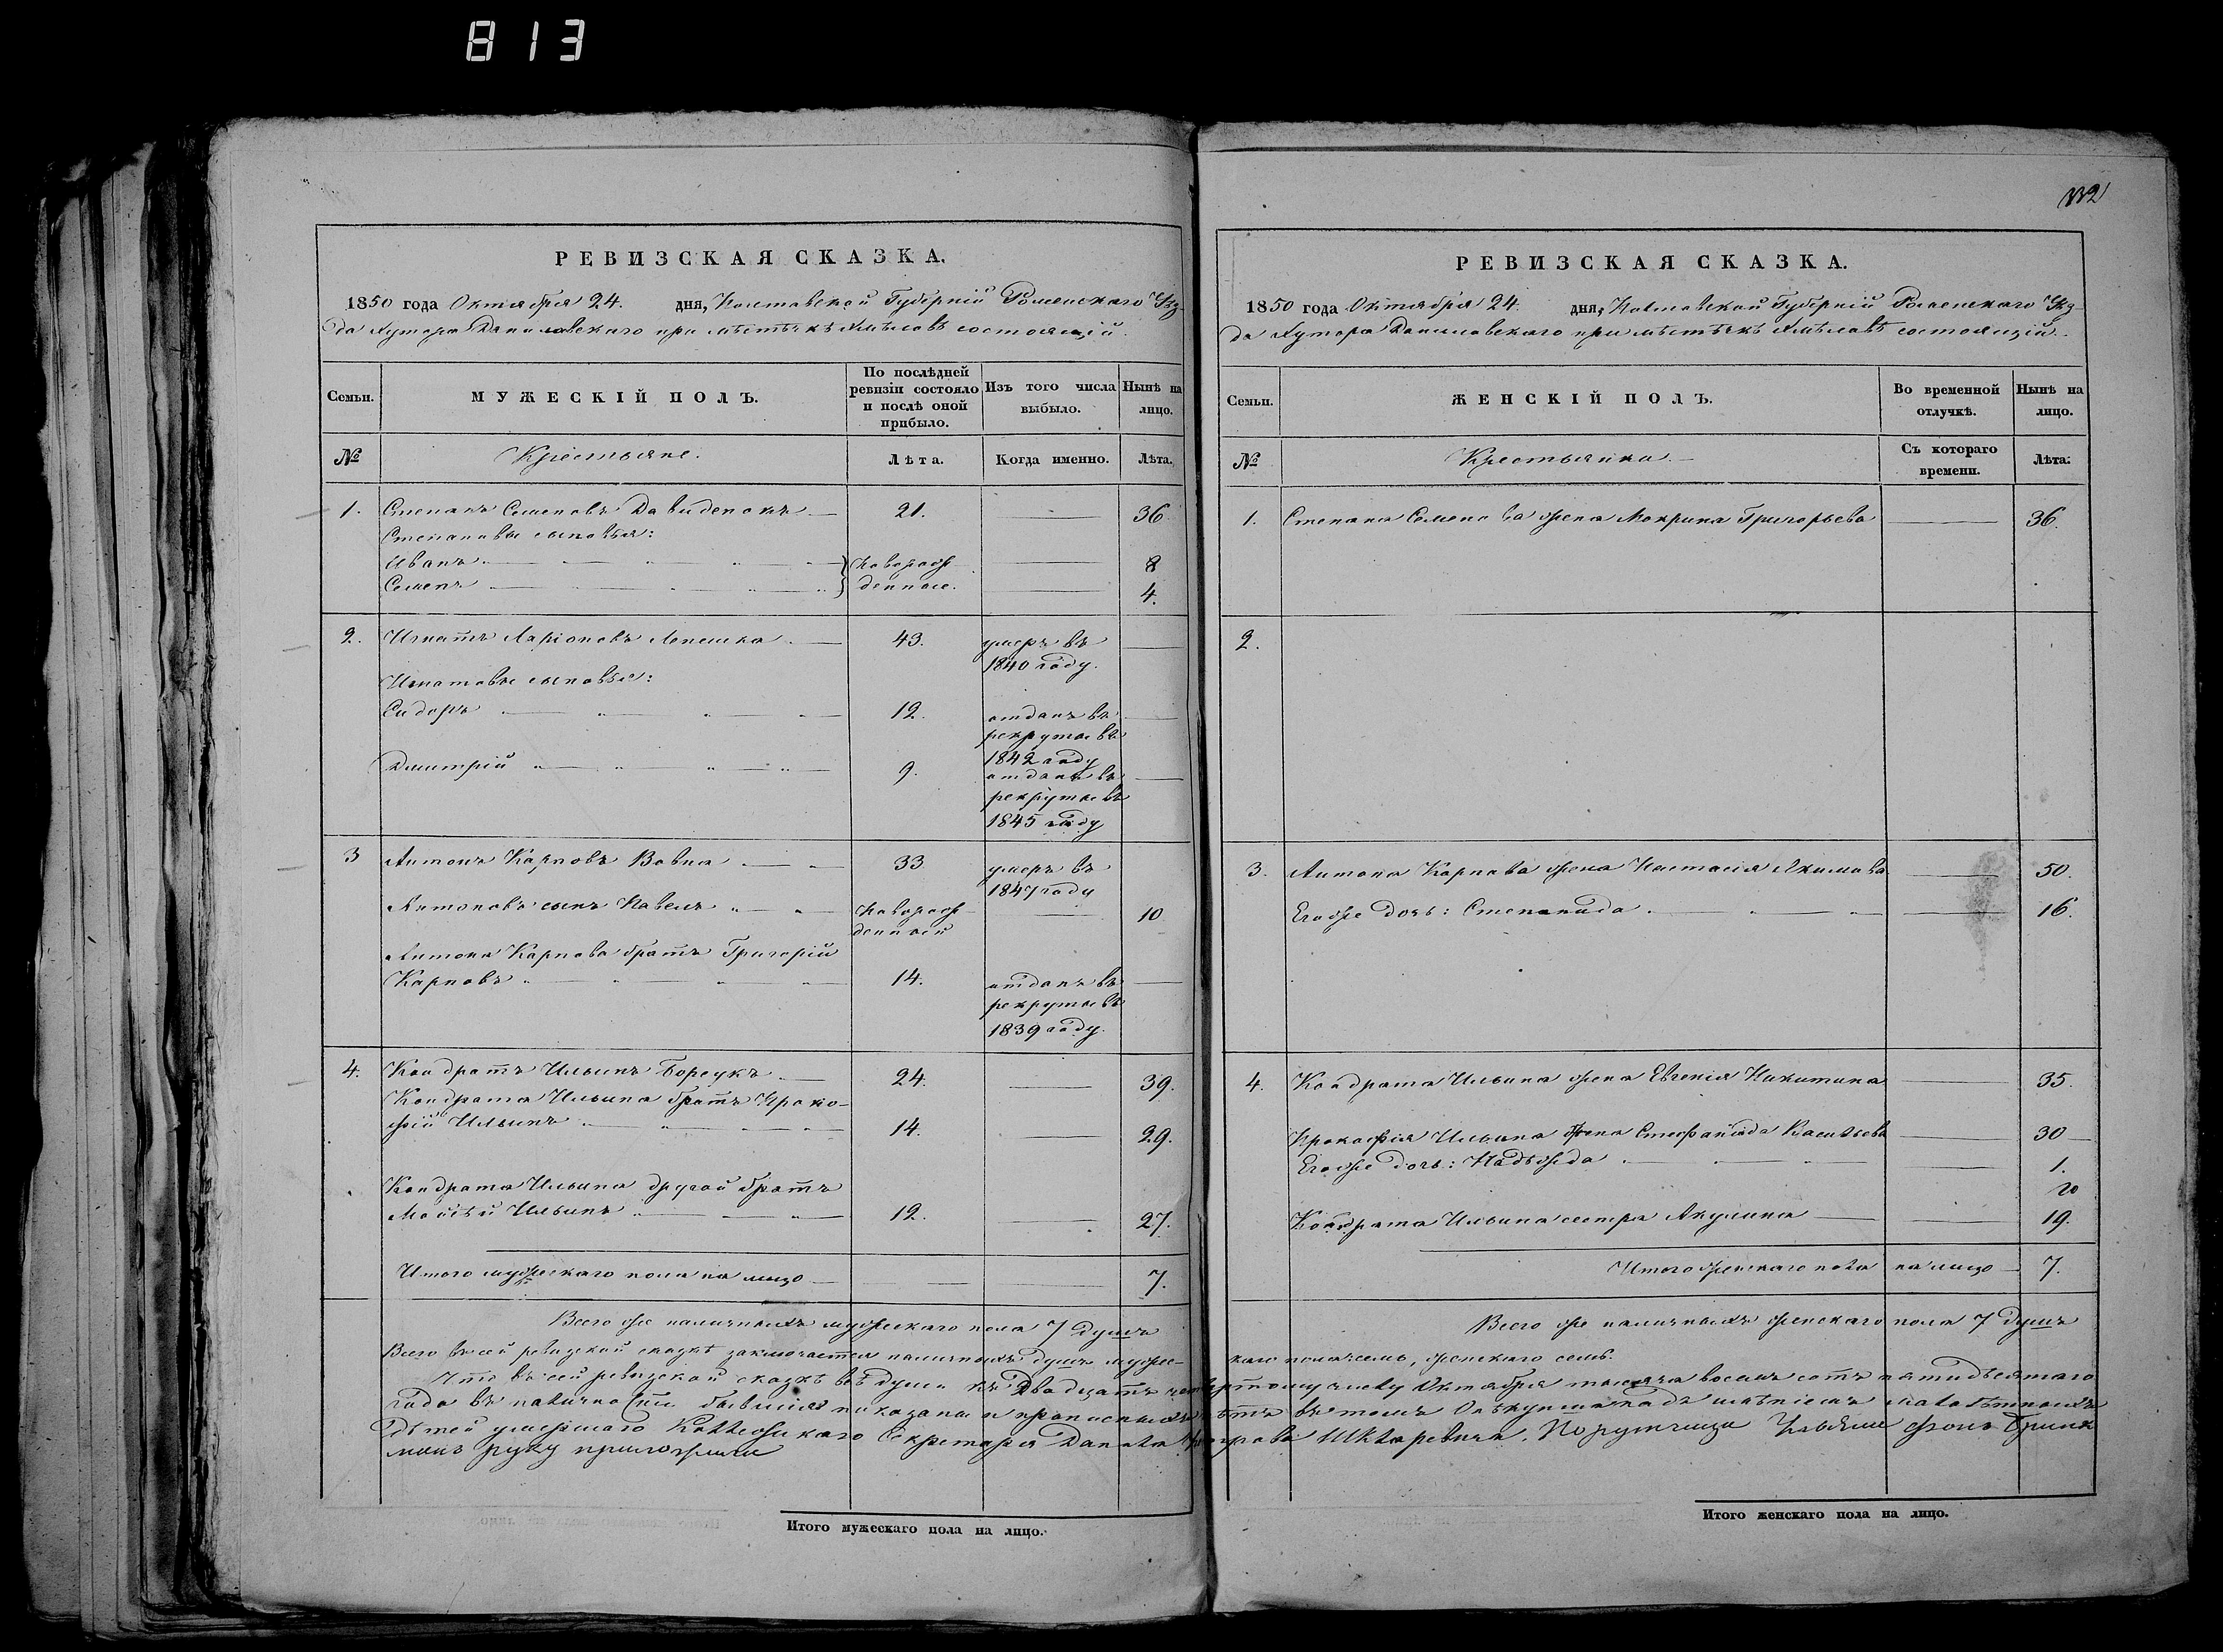 813
112
РЕВИЗСКАЯ СКАЗКА.
1850 года Октября 24. дня, Полтавской Губерніи Роменскаго Уѣз-
да Хутора Даниловскаго при мѣстѣчкѣ Хмѣловѣ состоящій.
Семьи. МУЖЕСКІЙ ПОЛЪ. По послѣдней ревизіи состояло и послѣ оной прибыло. Изъ того числа выбыло. Нынѣ на лицо.
№ Крестьяне. Лѣта. Когда именно. Лѣта.
1. Степанъ Семеновъ Давиденокъ 21. 36
Степановы сыновья:
Иванъ новорож 8
Семенъ денные. 4.
2. Игнатъ Ларіоновъ Лепешка 43. умеръ въ
1840 году.
Игнатовы сыновья:
Сидоръ 12. отданъ въ
рекруты въ
1842 году
Дмитрій 9. отданъ въ
рекруты въ
1845 году
3 Антонъ Карповъ Вовна 33 умеръ въ
1847 году
Антоновъ сынъ Павелъ новорож 10
денный
Антона Карпова братъ Григорій
Карповъ 14. отданъ въ
рекруты въ
1839 году.
4. Кондратъ Ильинъ Борсукъ 24. 39.
Кондрата Ильина братъ Проко-
фій Ильинъ 14. 29.
Кондрата Ильина другой братъ
Мойсѣй Ильинъ 12. 27.
Итого мужескаго пола на лицо 7.
Всего же наличныхъ мужескаго пола 7 душъ
РЕВИЗСКАЯ СКАЗКА.
1850 года Октября 24. дня, Полтавской Губерніи Роменскаго Уѣз-
да Хутора Даниловскаго при мѣстѣчкѣ Хмѣловѣ состоящій.
Семьи. ЖЕНСКІЙ ПОЛЪ. Во временной отлучкѣ. Нынѣ на лицо.
№ Крестьянки. Съ котораго времени. Лѣта.
1. Степана Семенова жена Мокрина Григорьева 36.
2.
3. Антона Карпова жена Настасія Якимова 50.
Егоже дочь: Степанида 16.
4. Кондрата Ильина жена Евгенія Никитина 35.
Прокофія Ильина жена Стефанида Васильева 30
Егоже дочь: Надѣжда 1.
Кондрата Ильина сестра Акулина 19.
Итого женскаго пола на лицо 7.
Всего же наличныхъ женскаго пола 7 душъ
Всего въ сей ревизской сказкѣ заключается наличныхъ душъ мужес- каго пола семь, женскаго семь.
Что въ сей ревизской сказкѣ всѣ души къ двадцать четвертому числу Октября тысяча восемь сотъ пятидѣсятаго
года въ наличности бывшія показаны и прописныхъ нѣтъ въ томъ Опѣкунша надъ имѣніемъ малолѣтныхъ
дѣтей умершаго Коллежскаго Секретаря Данила Шкляревича. Порутчица фонъ Брин
манъ руку приложила
Итого мужескаго пола на лицо.
Итого женскаго пола на лицо.